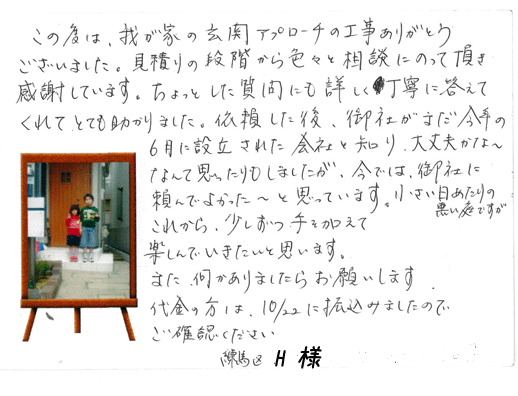 この度は、我が家の玄関アプローチの工事ありがとう
ございました。見積りの段階から色々と相談にのって頂き
感謝しています。ちょっとした質問にも詳しく丁寧に答えて
くれてとても助かりました。依頼した後、御社がまだ今年の
6月に設立された会社と知り、大丈夫かな〜
なんて思ったりもしましたが、今では、御社に
頼んでよかった〜と思っています。小さい日あたりの
悪い庭ですが
これから、少しずつ手を加えて
楽しんでいきたいと思います。
また何かありましたらお願いします
代金の方は、10/22に振込みましたので
ご確認ください
練馬区 H 様